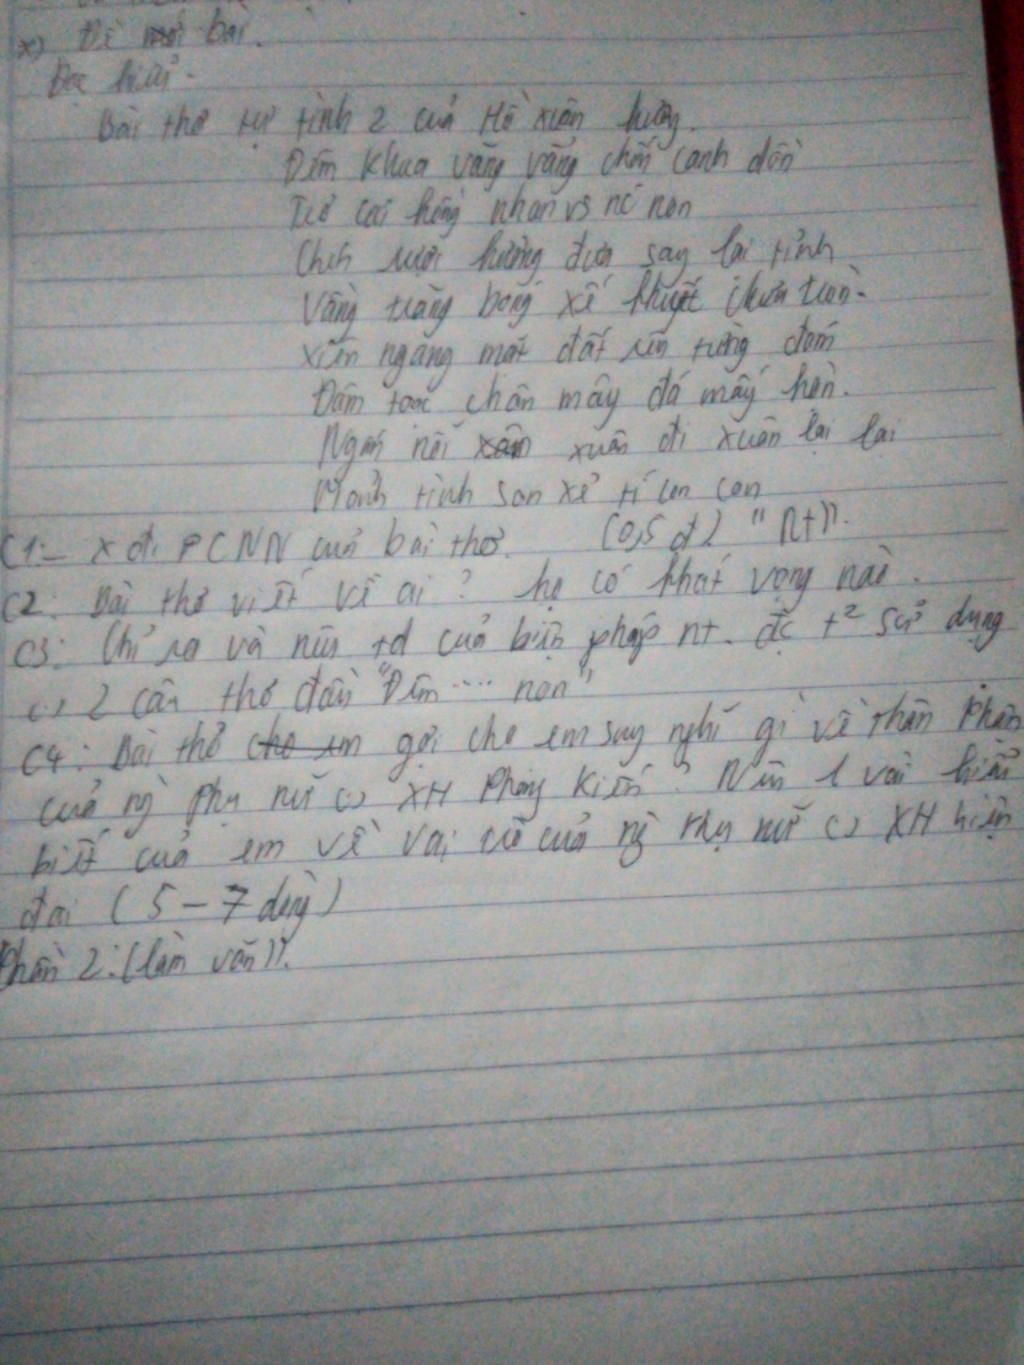 x) Đề mở bài.
Đọc hiểu.
Bài thơ tự tình 2 của Hồ xuân hương.
Đêm khua văng vẳng chốn canh dồn
Trơ cái hồng nhan vs nc non
Chén rượi hương đưa say lại tỉnh
Vầng trăng bóng xế khuyết chưa tròn.
xiên ngang mặt đất rêu từng đám
Đâm toạc chân mây đá mấy hòn.
Ngán nỗi xuân đi xuân lại lại
Mảnh tình san xẻ tí con con
C1:- x đ. PCNN của bài thơ. (0,5 đ) "nt".
C2: Bài thơ viết về ai? họ có khát vọng nào.
C3: Chỉ ra và nêu td của biện pháp nt. đc t² sử dụng
2 câu thơ đầu "Đêm .... non"
C4: Bài thơ gợi cho em suy nghĩ gì về thân phận
của ng phụ nữ XH Phong kiến? Nêu 1 vài hiểu
biết của em về vai trò của ng phụ nữ XH hiện
đại (5 - 7 dòng)
Phần 2: (làm văn).